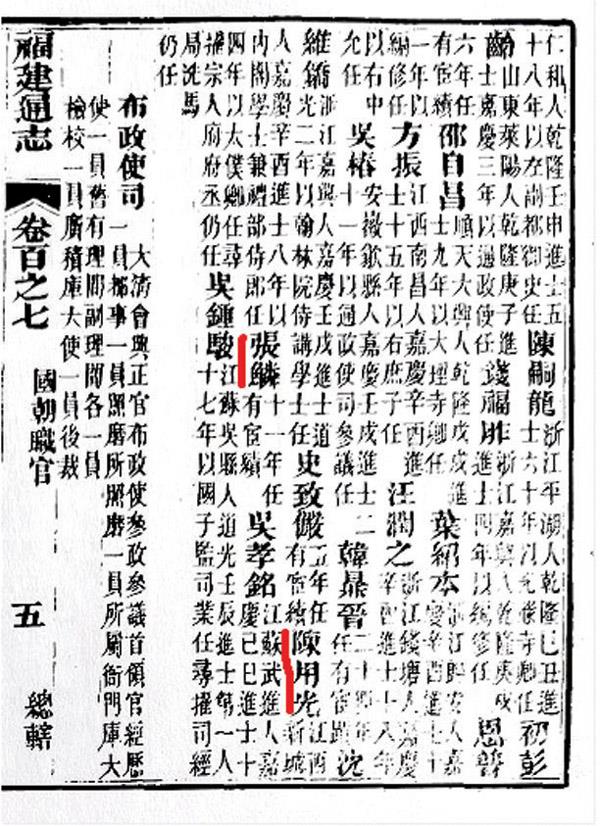 仁和人乾隆壬申進士五十八年以左副都御史任陳嗣龍浙江平湖人乾隆己丑進士六十年以光祿寺卿任初彭
齡山東萊陽人乾隆庚子進士嘉慶三年以通政使任錢福胙浙江嘉興人乾隆庚戌進士四年以編修任恩普
六年任有宦績邵自昌順天大興人乾隆戊戌進士九年以大理寺卿任葉紹本浙江歸安人嘉慶辛酉進士十
一年以編修任方振江西南昌人嘉慶辛酉進士十五年以右庶子任汪潤之浙江錢塘人嘉慶辛酉進士十八年
以右中允任吳椿安徽歙縣人嘉慶壬戌進士二十一年以通政使司參議任韓鼎晉二十四年任有宦蹟沈
維鐈浙江嘉興人嘉慶壬戌進士道光二年以翰林院侍講學士任史致儼五年任有宦績陳用光江西新城
人嘉慶辛酉進士八年以內閣學士兼禮部侍郎任張鱗十一年任有宦績吳孝銘江蘇武進人嘉慶己巳進士十
四年以太僕卿任尋擢宗人府府丞仍任吳鍾駿江蘇吳縣人道光壬辰進士第一人十七年以國子監司業任尋擢司經
局洗馬仍任
布政使司大清會典正官布政使參政參議首領官經歷一員都事一員照磨所照磨一員所屬衙門庫大
使一員舊有理問副理問各一員檢校一員廣積庫大使一員後裁
福建通志 卷百之七 國朝職官 五 總轄